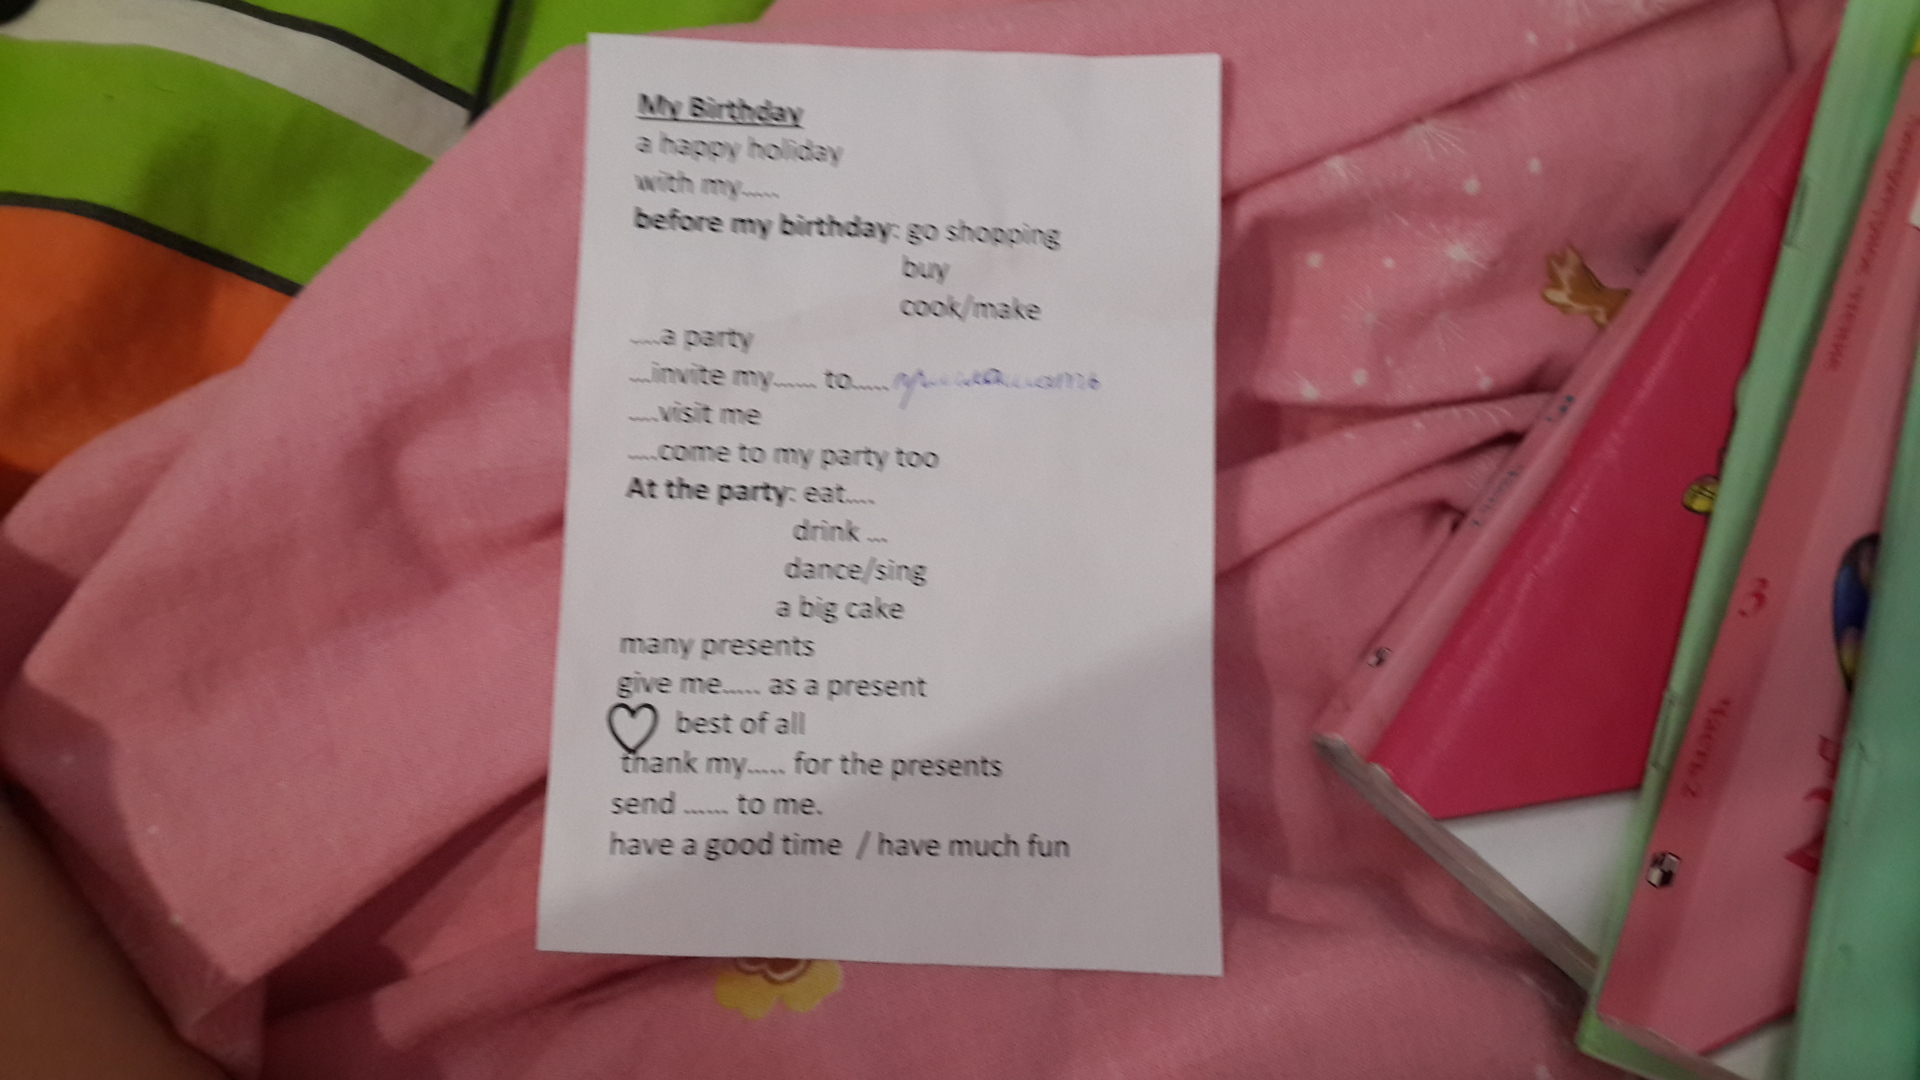 My Birthday
a happy holiday
with my......
before my birthday: go shopping
buy
cook/make
.....a party
....invite my...... to...... приглашать
.....visit me
.....come to my party too
At the party: eat.....
drink ...
dance/sing
a big cake
many presents
give me...... as a present
best of all
thank my..... for the presents
send ...... to me.
have a good time / have much fun
Часть 2
3